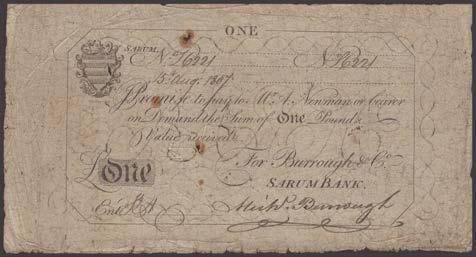 ONE
SARUM. No. 16221 No. 16221
15 Aug. 1807
I Promise to pay to Mr. A. Newman or bearer
on Demand the Sum of One Pound.
Value received.
For Burrough & Co.
£ One SARUM BANK.
Entd. Mich. Burrough